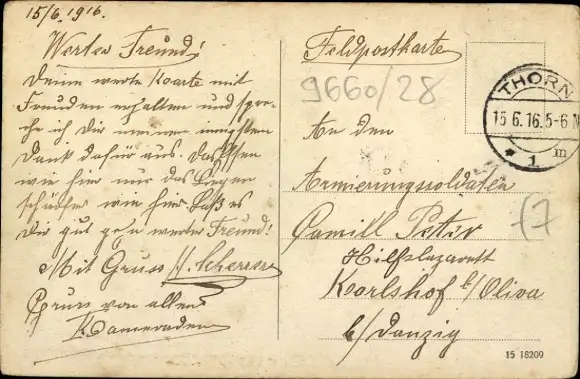 15/6.1916.
Werter Freund!
Deine werte Karte mit
Freuden erhalten und spre-
che ich Dir meinen innigsten
Dank dafür aus. Das Essen
wie hier nur das
wie hier. Laß es
Dir gut gehn werter Freund!
Mit Gruss H. Scherrer
Gruss von allen
Kameraden
Feldpostkarte
9660/28
THORN
15.6.16.5-6N
* 1 m
An den
Armierungssoldaten
Camill Peter
Hilfslazarett
Karlshof b/Oliva
b/Danzig
17
15 18209